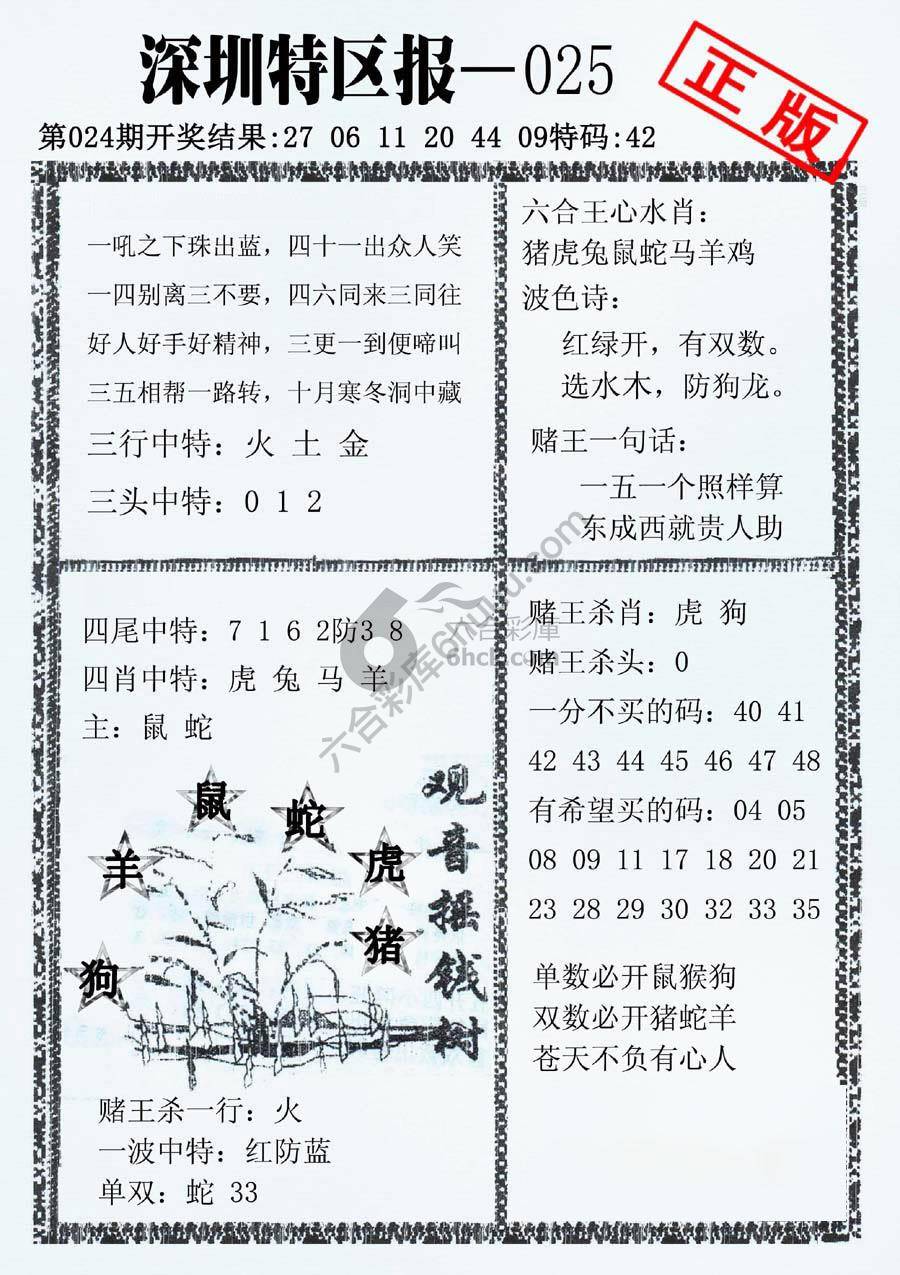 深圳特区报—025
正版
第024期开奖结果:27 06 11 20 44 09特码:42
一吼之下珠出蓝，四十一出众人笑
一四别离三不要，四六同来三同往
好人好手好精神，三更一到便啼叫
三五相帮一路转，十月寒冬洞中藏
三行中特：火 土 金
三头中特：0 1 2
六合王心水肖：
猪虎兔鼠蛇马羊鸡
波色诗：
红绿开，有双数。
选水木，防狗龙。
赌王一句话：
一五一个照样算
东成西就贵人助
四尾中特：7 1 6 2防3 8
四肖中特：虎 兔 马 羊
主：鼠 蛇
鼠
蛇
羊
虎
猪
狗
观音摇钱树
赌王杀一行：火
一波中特：红防蓝
单双：蛇 33
赌王杀肖：虎 狗
赌王杀头：0
一分不买的码：40 41
42 43 44 45 46 47 48
有希望买的码：04 05
08 09 11 17 18 20 21
23 28 29 30 32 33 35
单数必开鼠猴狗
双数必开猪蛇羊
苍天不负有心人
六合彩库
六合彩库6hutu.com